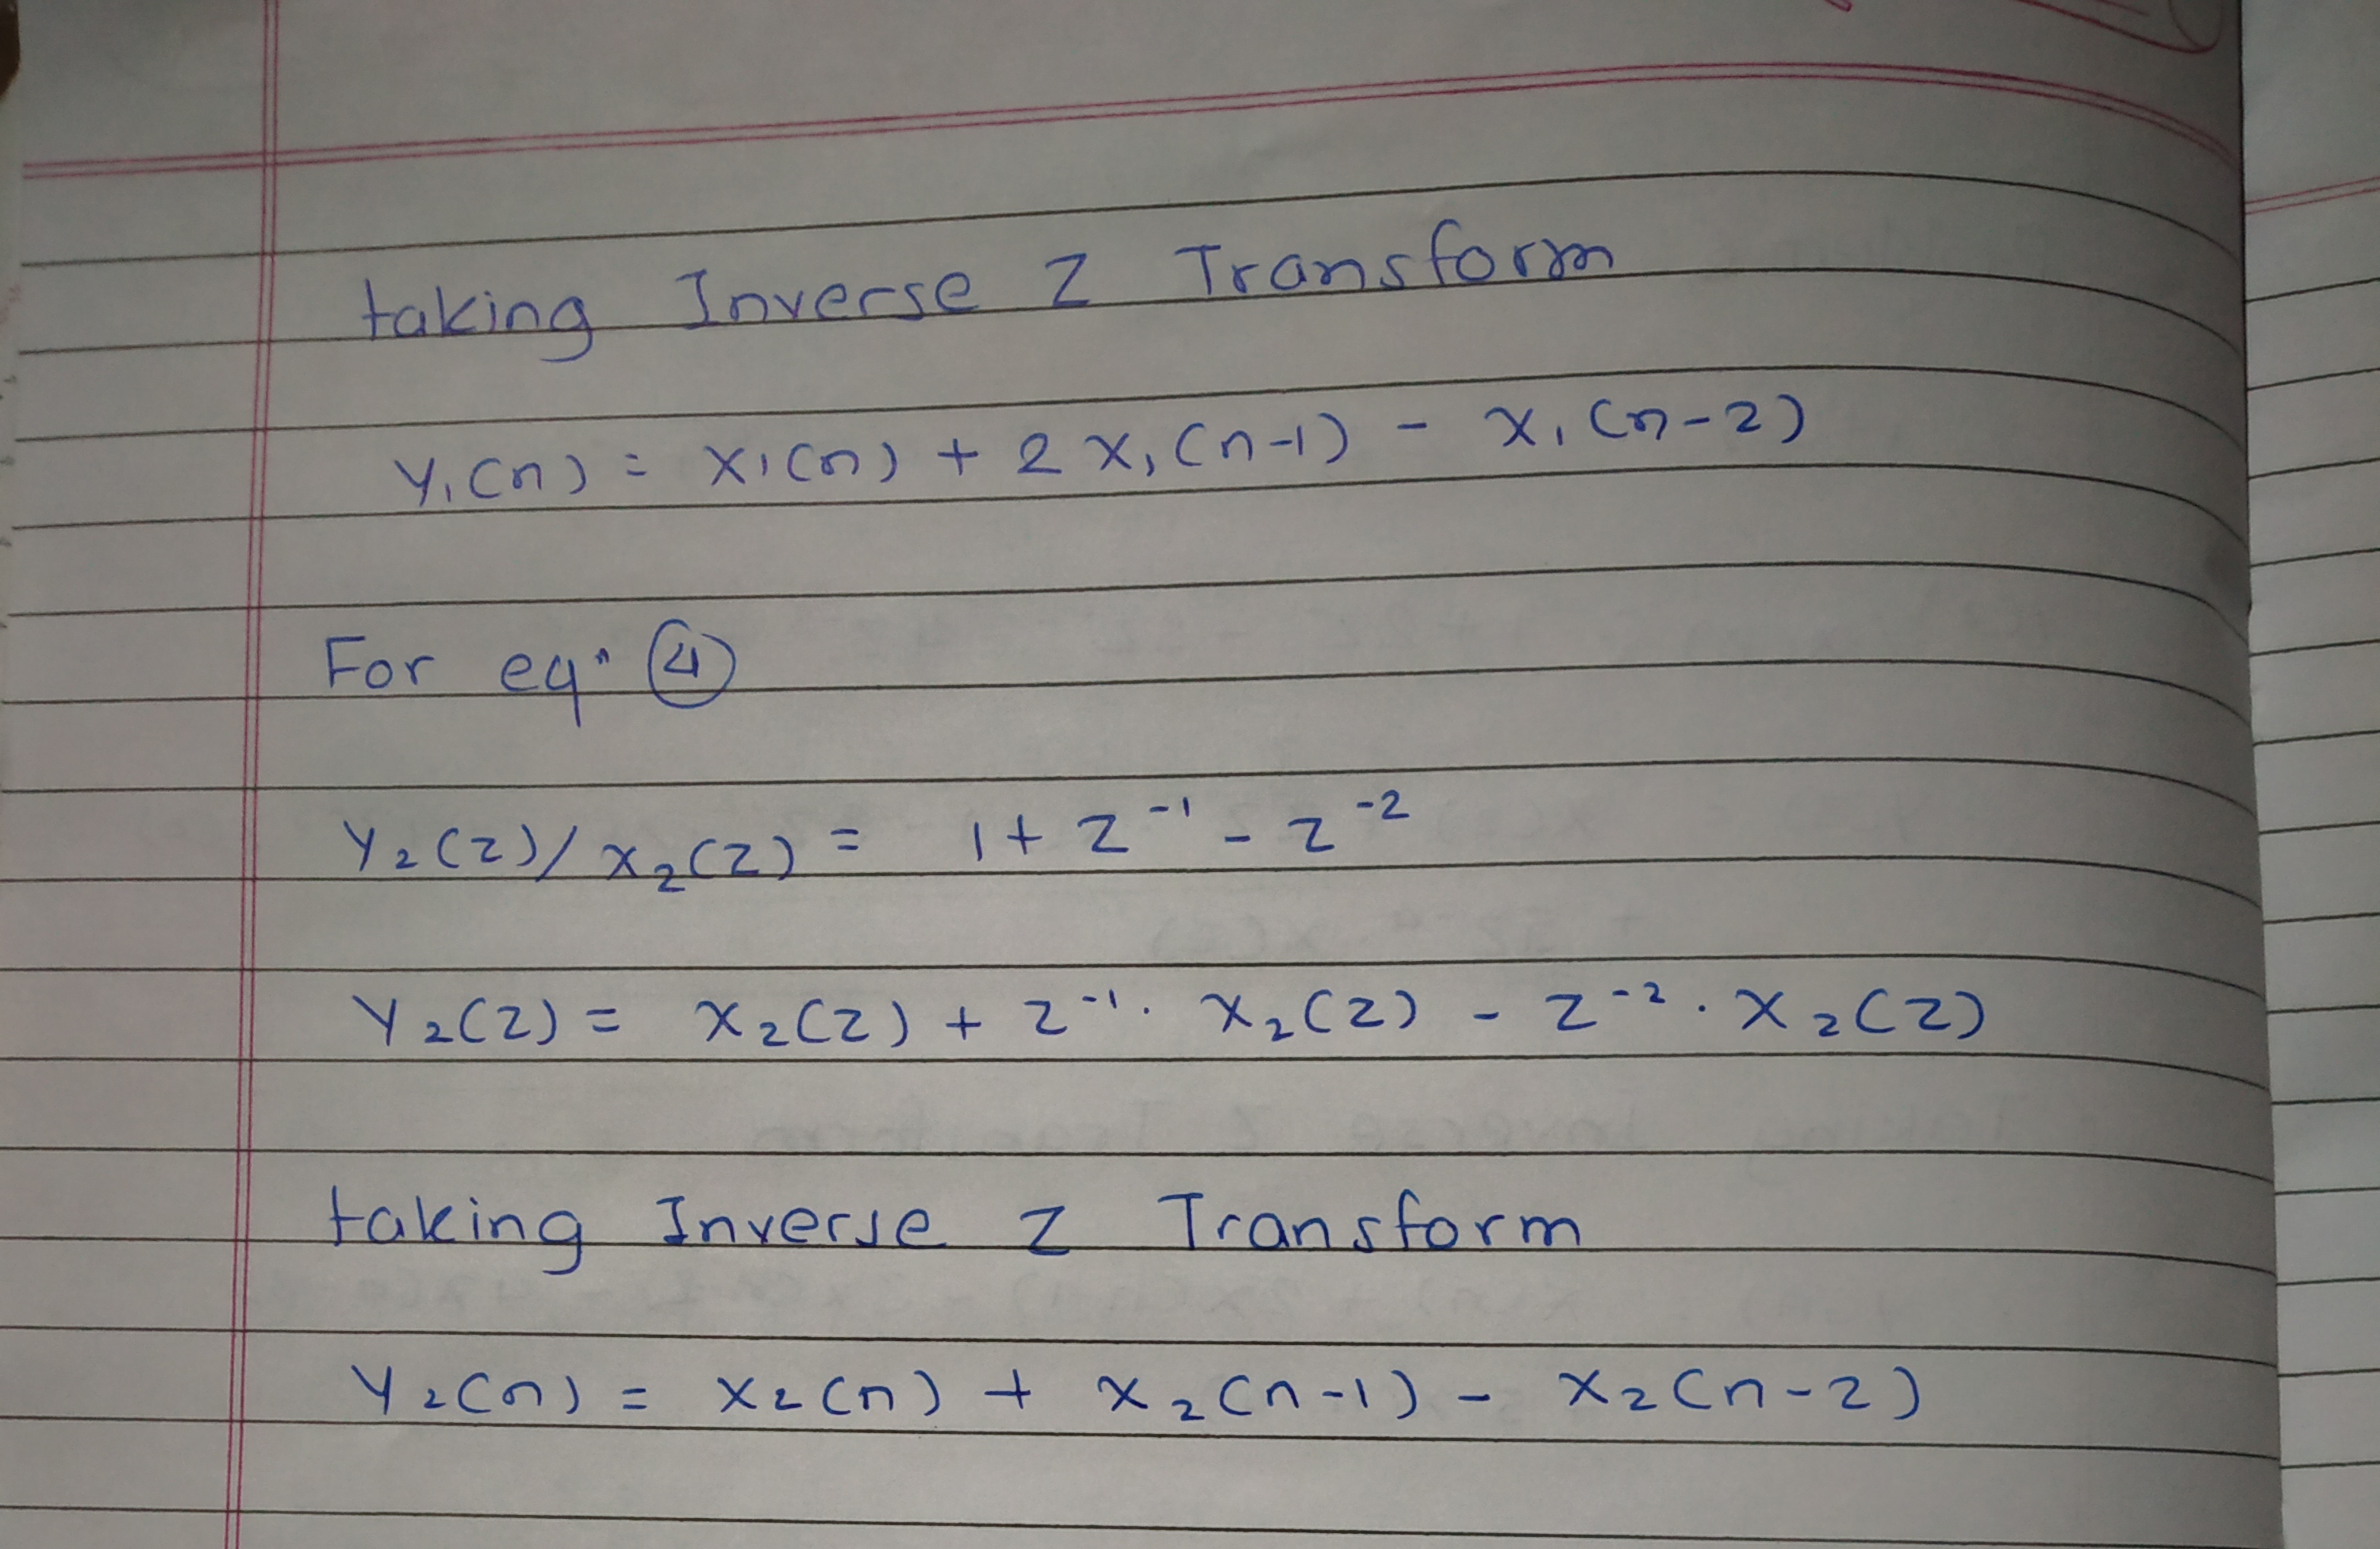 taking Inverse Z Transform
Y₁(n) = X₁(n) + 2 X₁(n-1) - X₁(n-2)
For eqⁿ ④
Y₂(Z)/X₂(Z) = 1 + Z⁻¹ - Z⁻²
Y₂(Z) = X₂(Z) + Z⁻¹. X₂(Z) - Z⁻² . X₂(Z)
taking Inverse Z Transform
Y₂(n) = X₂(n) + X₂(n-1) - X₂(n-2)